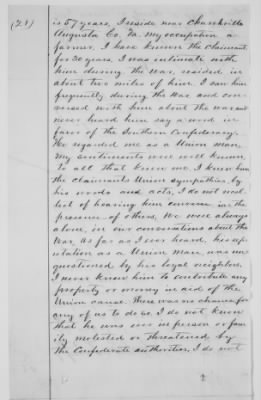 (21)
is 57 years, I reside near Churchville
Augusta Co. Va. My occupation a
farmer, I have known the claimant
for 30 years, I was intimate with
him during the war, resided in
about two miles of him. I saw him
frequently during the war and con
versed with him about the war and
never heard him say a word in
favor of the Southern Confederacy.
He regarded me as a Union man,
My sentiments were well known
to all that knew me. I knew him
the claimants Union sympathies by
his words and acts, I do not recol
lect of hearing him converse in the
presence of others, We were always
alone, in our conversations about the
War, As far as I ever heard, his rep
utation as a Union man was un
questioned by his loyal neighbors.
I never knew him to contribute any
property or money in aid of the
Union cause. There was no chance for
any of us to do so. I do not know
that he was ever in person or fam
ily molested or threatened by
the Confederate authorities, I do not